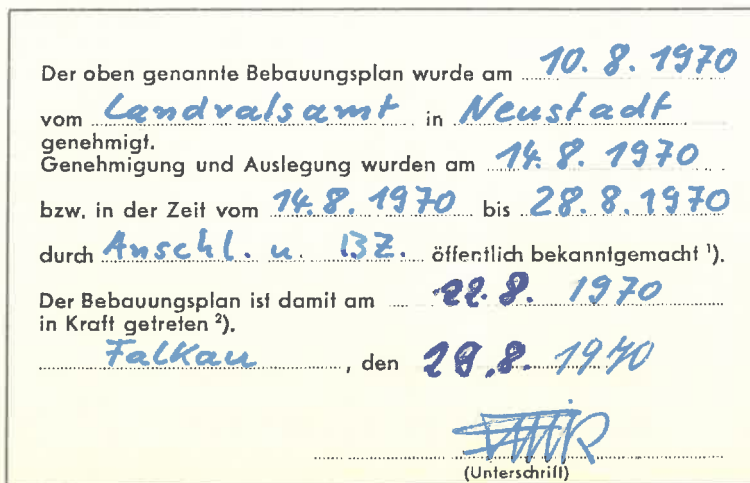 Der oben genannte Bebauungsplan wurde am 10. 8. 1970
vom Landratsamt in Neustadt
genehmigt.
Genehmigung und Auslegung wurden am 14. 8. 1970
bzw. in der Zeit vom 14. 8. 1970 bis 28. 8. 1970
durch Anschl. u. BZ. öffentlich bekanntgemacht ¹).
Der Bebauungsplan ist damit am 8. 1970
in Kraft getreten ²).
Falkau, den 29. 8. 1970
(Unterschrift)